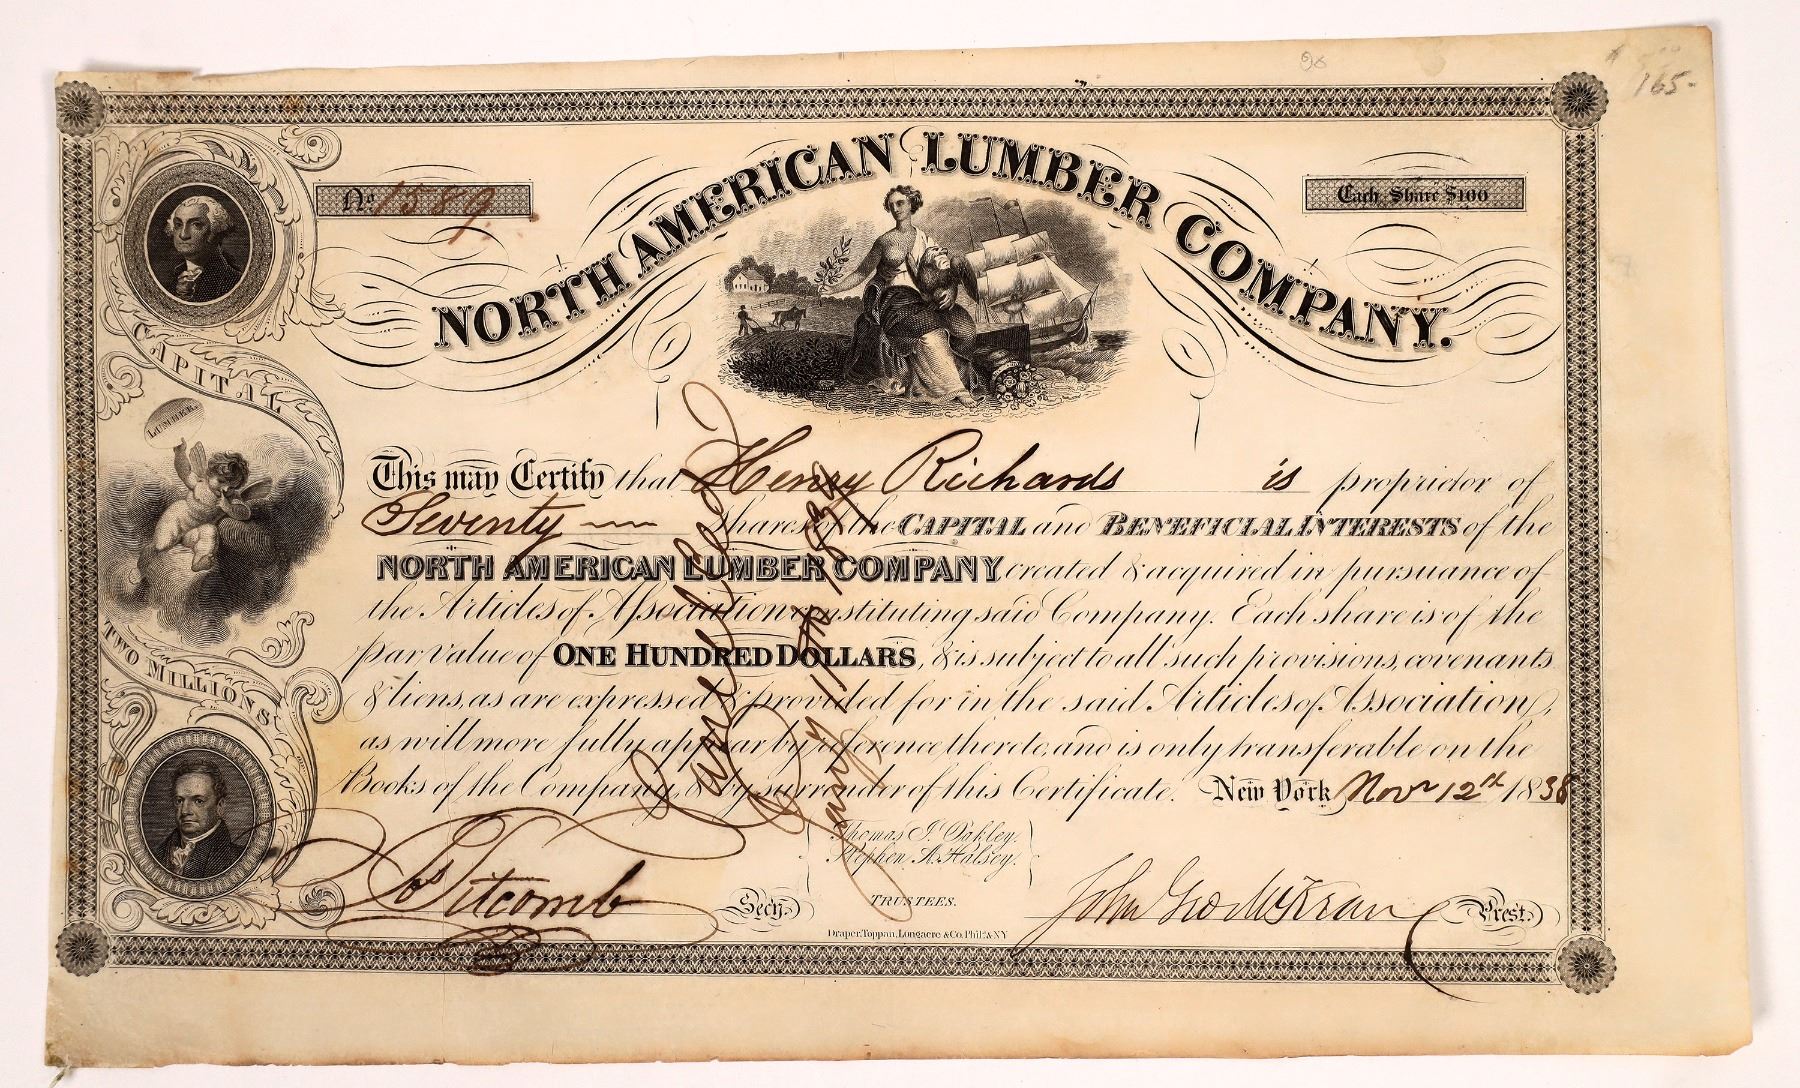 98
165-
No. 1589.
NORTH AMERICAN LUMBER COMPANY.
Each Share $100
CAPITAL
LUMBER
TWO MILLIONS
This may Certify that Henry Richards is proprietor of
Seventy shares of the CAPITAL and BENEFICIAL INTERESTS of the
NORTH AMERICAN LUMBER COMPANY, created & acquired in pursuance of
the Articles of Association constituting said Company. Each share is of the
par value of ONE HUNDRED DOLLARS, & is subject to all such provisions, covenants
& liens, as are expressed & provided for in the said Articles of Association,
as will more fully appear by reference thereto, and is only transferable on the
Books of the Company, & by surrender of this Certificate. New York Novr 12th 1838
Cancelled
11th 1839
Thomas J. Oakley.
Stephen A. Halsey.
TRUSTEES.
Jos Titcomb Secy.
John Geo McKean Prest.
Draper, Toppan, Longacre & Co. Phila. & NY